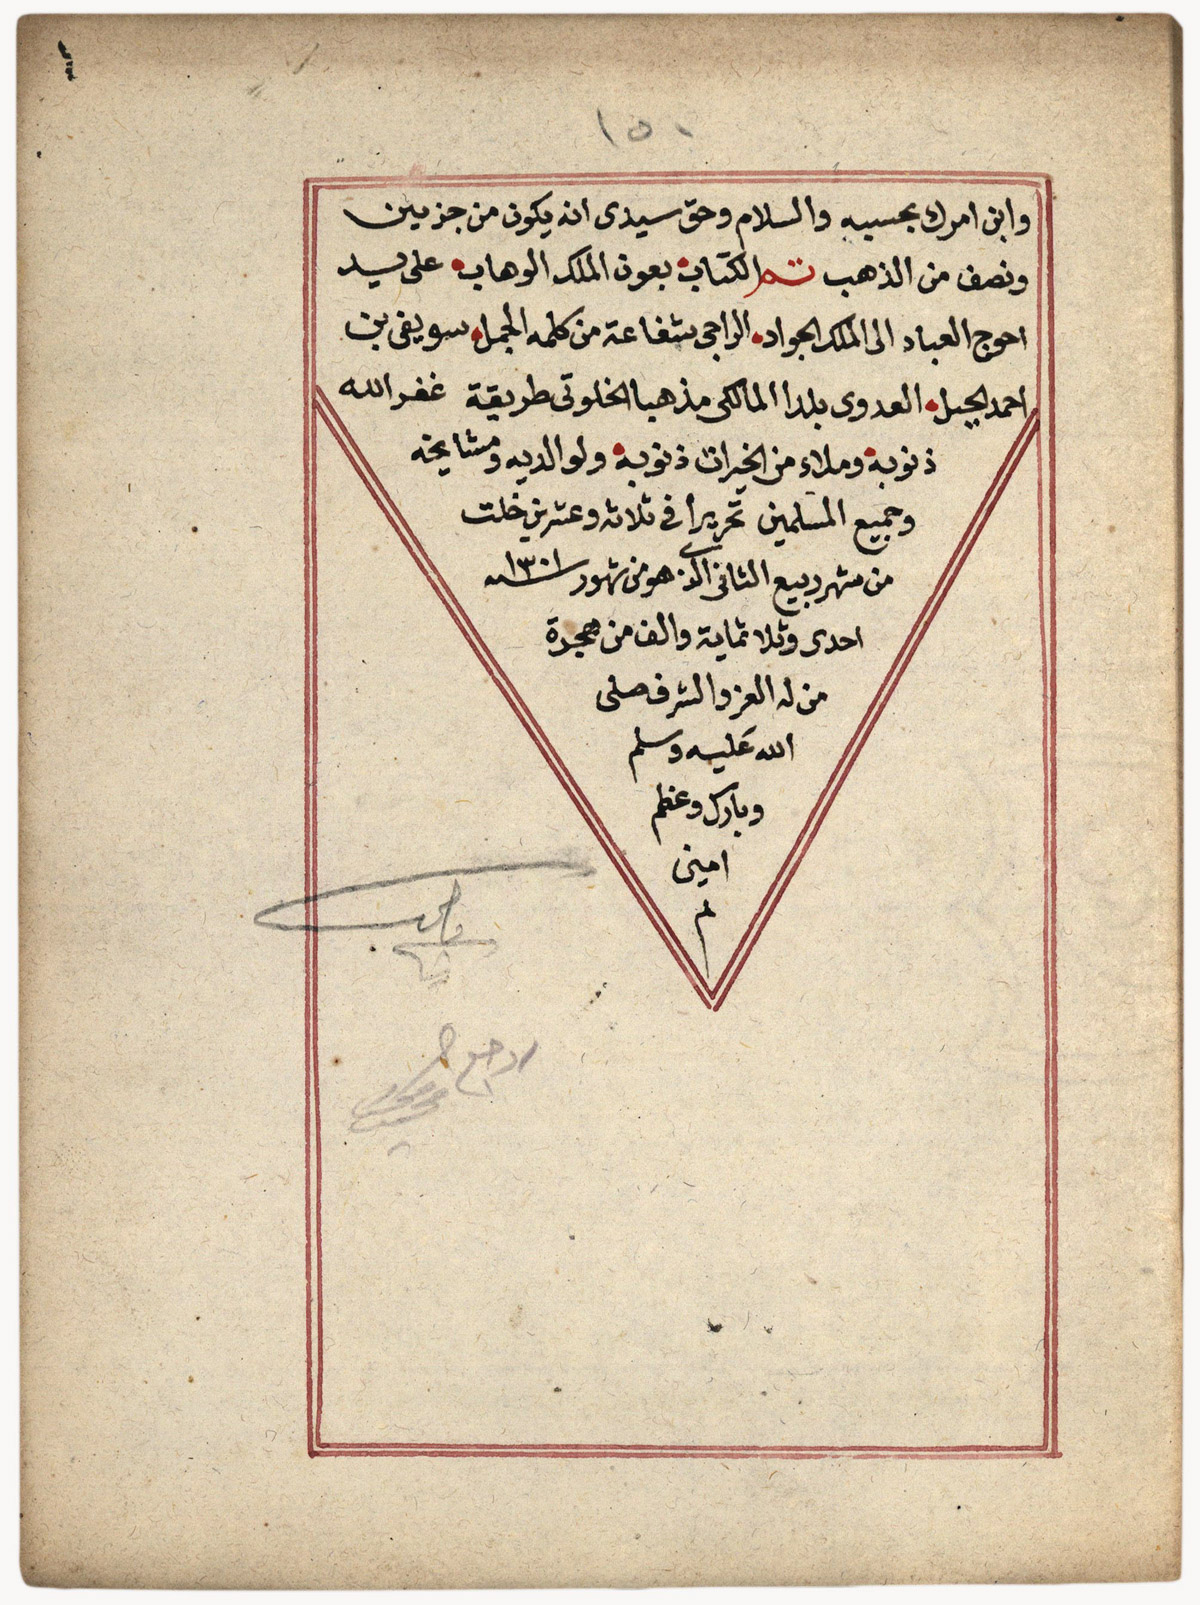 ١٥٠
وابن امرك بحسيبه والسلام وحق سيدى انه يكون من جزئين
ونصف من الذهب تم الكتاب بعون الملك الوهاب على يد
احوج العباد الى الملك الجواد الراجى شفاعة من كلمه الجمل سويفى بن
احمد الجبل العدوى بلدا المالكى مذهبا الخلوتى طريقة غفر الله
ذنوبه وملاء من الخيرات ذنوبه ولوالديه ومشايخه
وجميع المسلمين تحريرا فى ثلاثه وعشرين خلت
من شهر ربيع الثانى الذى هو من شهور سنة ١٣٠١
احدى وثلاثماية والف من هجرة
من له العز والشرف صلى
الله عليه وسلم
وبارك وعظم
امين
م
راجع